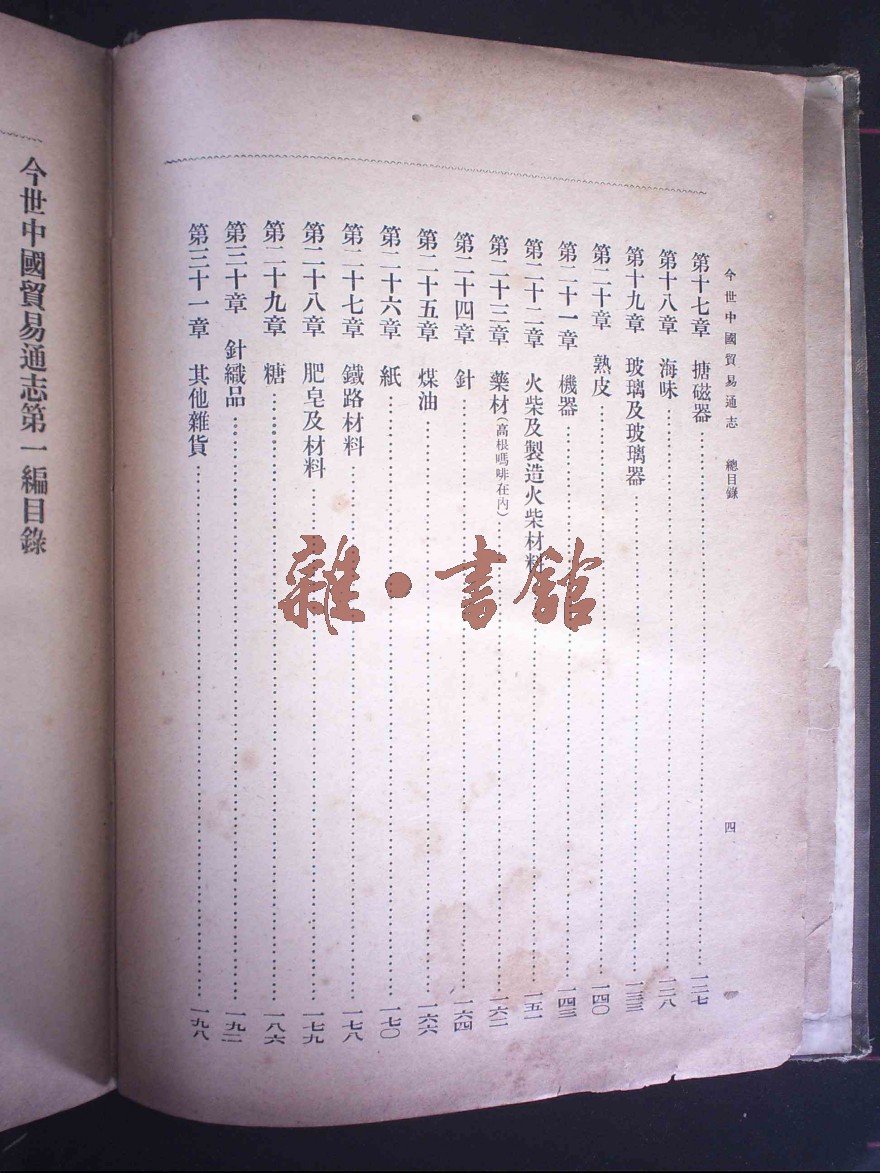 今世中國貿易通志 總目錄 四
第十七章 搪磁器 一二七
第十八章 海味 一二八
第十九章 玻璃及玻璃器 一三三
第二十章 熟皮 一四〇
第二十一章 機器 一四三
第二十二章 火柴及製造火柴材料 一五一
第二十三章 藥材(高根嗎啡在內) 一六二
第二十四章 針 一六四
第二十五章 煤油 一六六
第二十六章 紙 一七〇
第二十七章 鐵路材料 一七八
第二十八章 肥皂及材料 一七九
第二十九章 糖 一八六
第三十章 針織品 一九二
第三十一章 其他雜貨 一九八
今世中國貿易通志第一編目錄
雜·書館